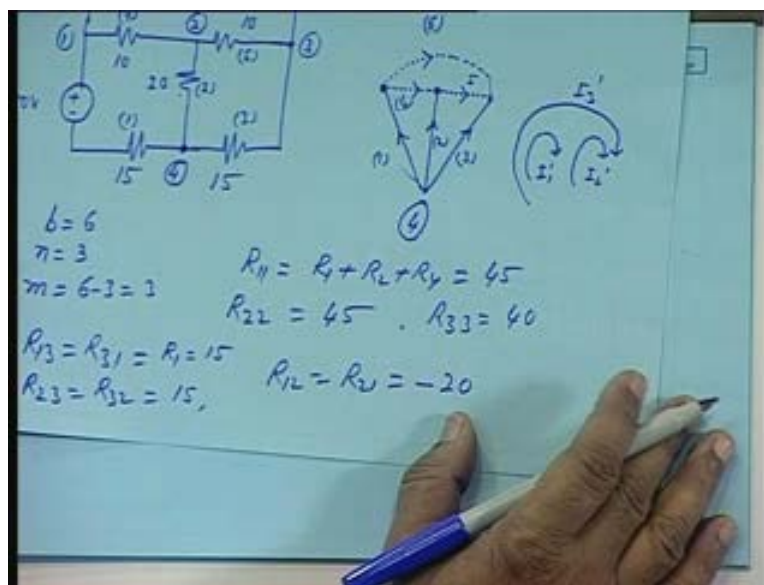 ① ② 10 ③
10 (5)
20 (2)
(1) (3)
15 ④ 15
(6)
(4) 5
(1) (2) (3)
④
I₃'
I₁' I₂'
b = 6
n = 3
m = 6-3 = 3
R₁₁ = R₁ + R₂ + R₄ = 45
R₂₂ = 45 . R₃₃ = 40
R₁₃ = R₃₁ = R₁ = 15
R₂₃ = R₃₂ = 15,
R₁₂ = R₂₁ = -20